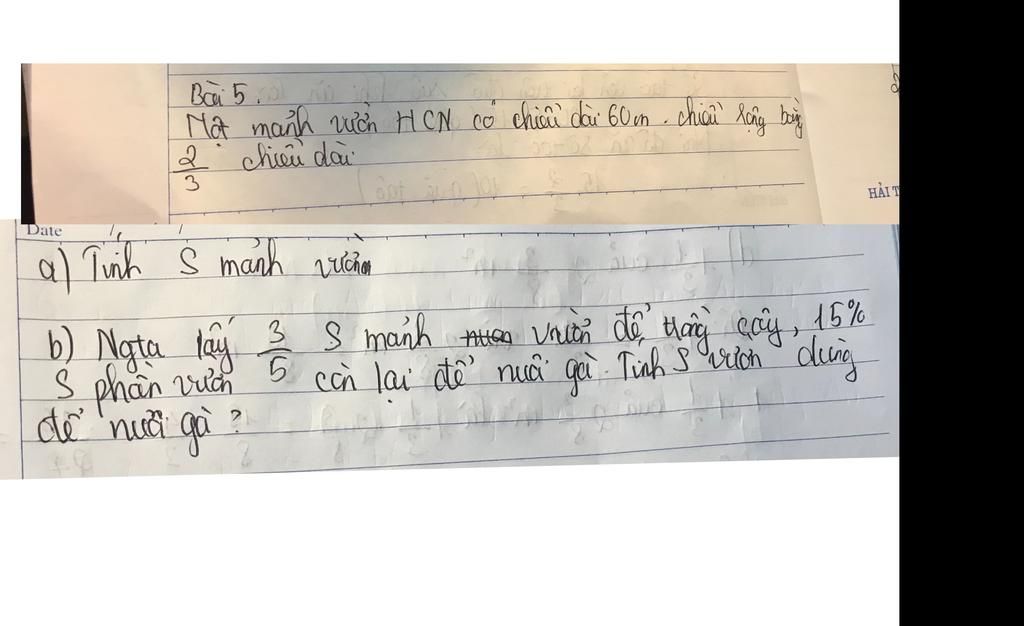 Bài 5.
Một mảnh vườn HCN có chiều dài 60m. chiều rộng bằng
2/3 chiều dài.
HẢI T
Date
a) Tính S mảnh vườn
b) Ngta lấy 3/5 S mảnh vườn để trồng cây, 15%
S phần vườn còn lại để nuôi gà. Tính S vườn dùng
để nuôi gà?